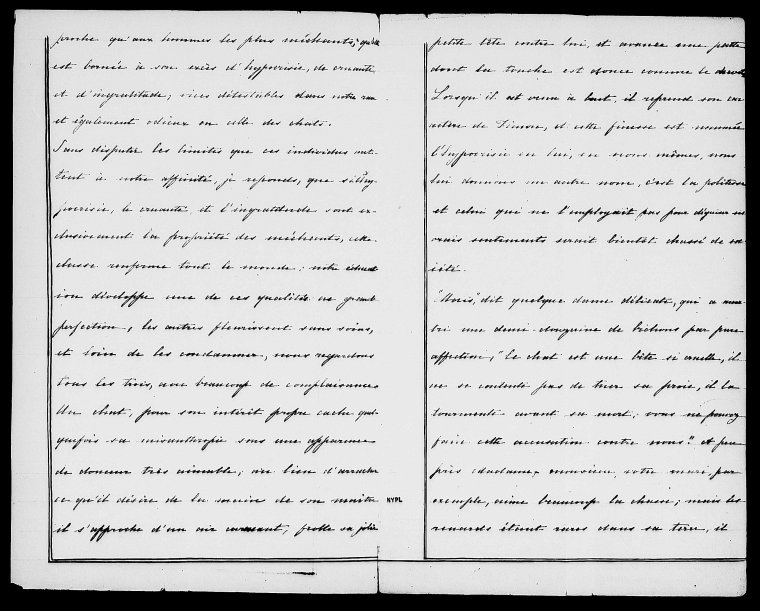 proche qu'aux hommes les plus méchants; qu'elle
est bornée à son excès d'hypocrisie, de cruauté
et d'ingratitude; vices détestables dans notre race
et également odieux en celle des chats.
Sans disputer les limites que ces individus met-
tent à notre affinité, je reponds, que si l'hy-
pocrisie, le cruauté et l'ingratitude sont ex-
clusivement la propriété des méchants, cette
classe renferme tout le monde; notre éducat
ion développe une de ces qualités en grande
perfection, les autres fleurissent sans soins,
et loin de les condamner, nous regardons
tous les trois, avec beaucoup de complaisance
Un chat, pour son intérêt propre cache quel-
quefois sa misanthropie sous une apparence
de douceur très aimable; au lieu d'arracher
ce qu'il désire de la main de son maitre
il s'approche d'un air caressant, frotte sa jolie
NYPL
petite tête contre lui, et avance une patte
dont la touche est douce comme le duvet
Lorsqu'il est venu à bout, il reprend son car
actère de Timon, et cette finesse est nommée
l'hypocrisie en lui, en nous mêmes, nous
lui donnons un autre nom, c'est la politesse
et celui qui ne l'employait pas pour déguiser ses
vrais sentements serait bientôt chassé de so
ciété.
"Mais", dit quelque dame délicate, qui a meur
tri une demi-douzaine de bichons par pure
affection, "Le chat est une bête si cruelle, il
ne se contente pas de tuer sa proie, il la
tourmente avant sa mort; vous ne pouvez
faire cette accusation contre nous". A peu
près cela dame monsieur votre mari, par
exemple, aime beaucoup la chasse; mais les
renards étant rares dans sa terre, il